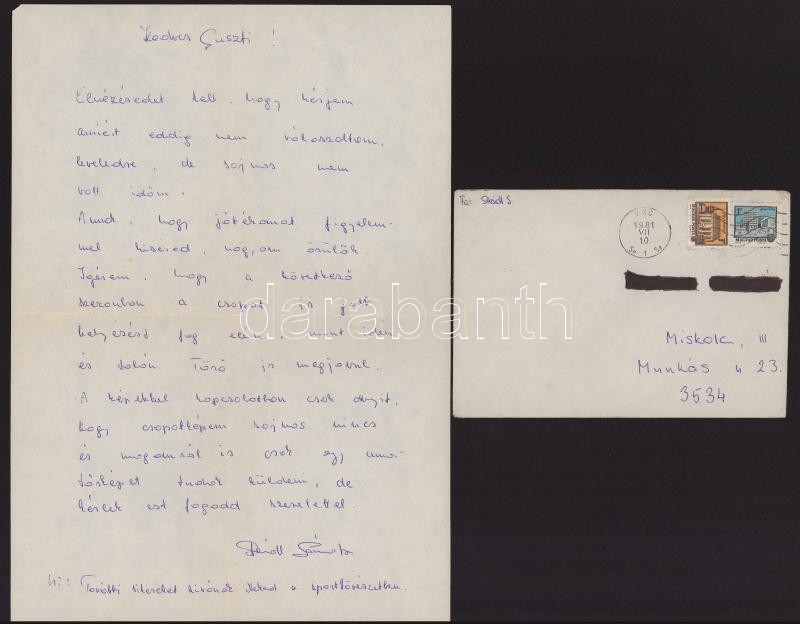 Kedves Guszti !
Elnézésedet kell, hogy kérjem
amiért eddig nem válaszoltam,
leveledre, de sajnos nem
volt időm.
Annak, hogy játékomat figyelem-
mel kiséred, nagyon örülök.
Igérem, hogy a következő
szezonban a csapat is jobb
helyezést fog elérni, mint idén
és talán Törő is megjavul.
A képekkel kapcsolatban csak annyit,
hogy csapatképem sajnos nincs
és magamról is csak egy ama-
tőrképet tudok küldeni, de
kérlek ezt fogadd szeretettel.
Sándor
További sikereket kivánok Neked a sportlövészetben.
darabanth
Fa: S.
1981
VII
10
Miskolc, III.
Munkás u 23.
3534